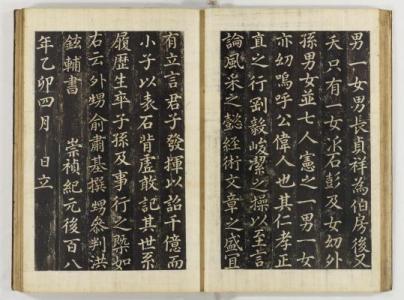 男一女男長貞祥為伯房後又
夭只有一女次石彭及女幼外
孫男女並七人憲之一男一女
亦幼嗚呼公偉人也其仁孝正
直之行剛毅峻潔之操以至言
論風采之懿經術文章之盛宜
有立言君子發揮以詔千億而
小子以表石背虛敢記其世系
履歷生卒子孫及事行之槩如
右云外甥俞肅基撰甥參判洪
鉉輔書 崇禎紀元後百八
年乙卯四月 日立